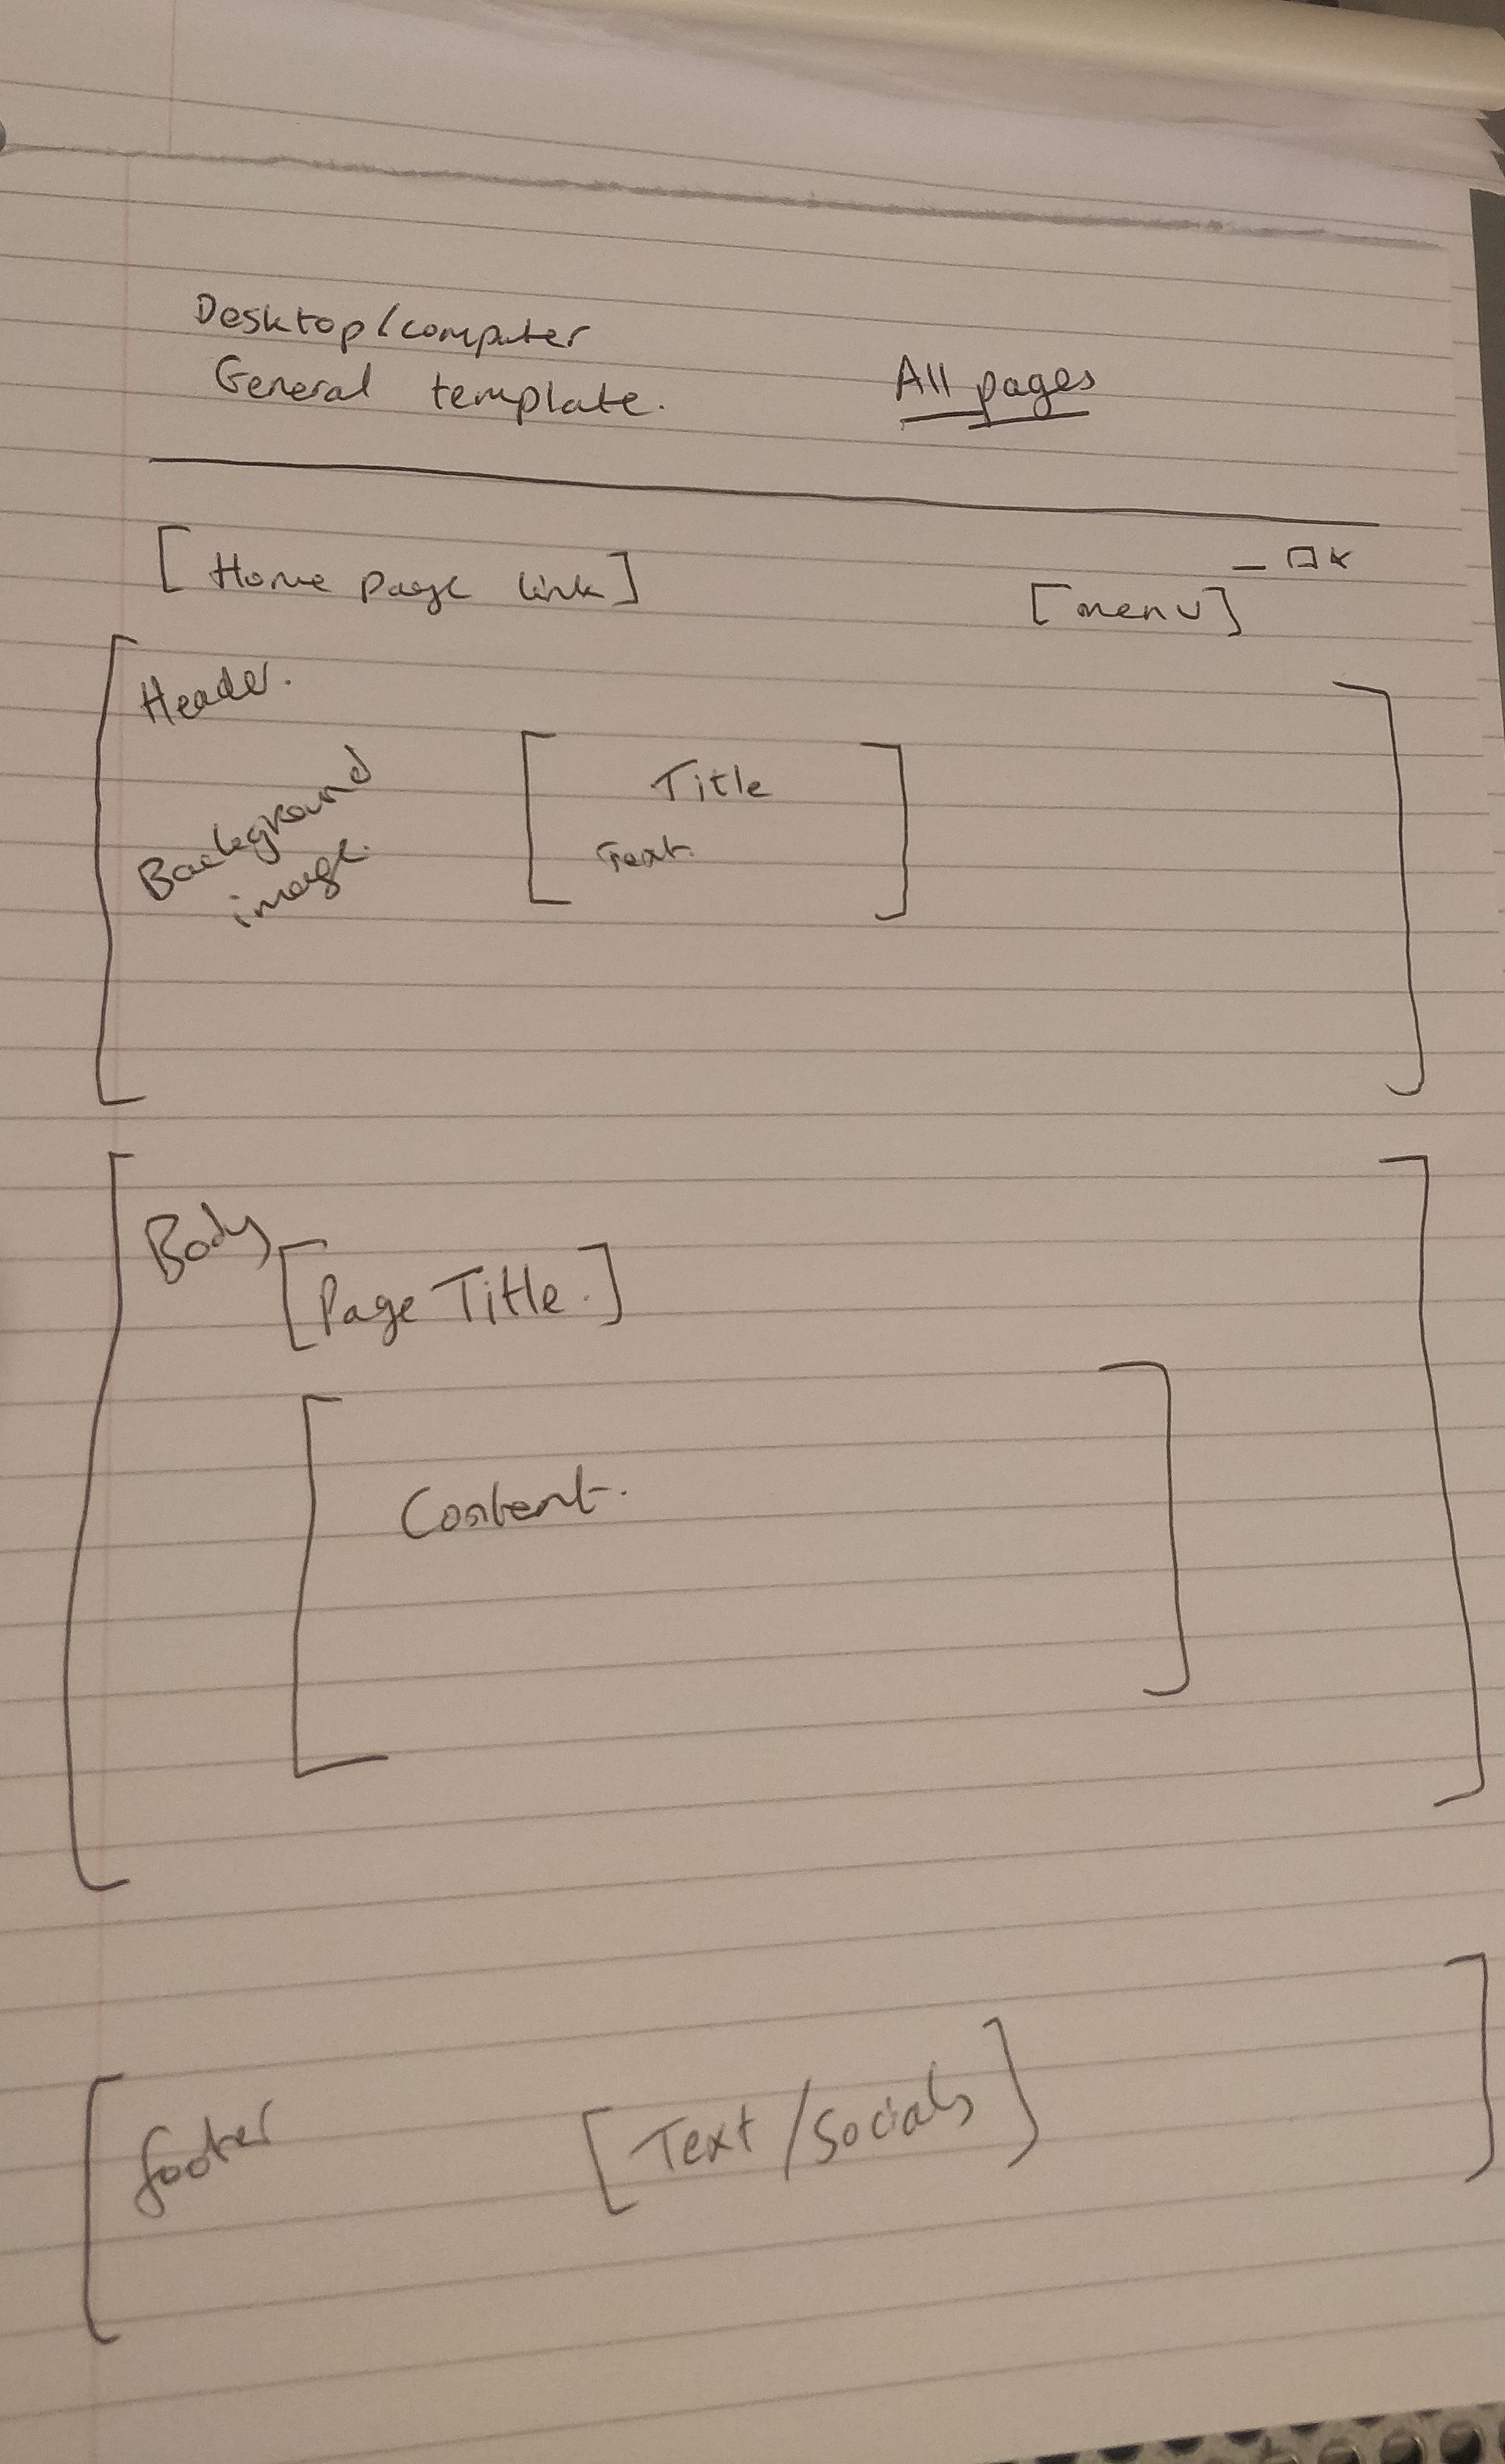 Desktop/computer
General template.
All pages
[Home page link]
[menu]
Header.
Background
image.
Title
Text.
Body
[Page Title.]
Content.
footer
[Text/Socials]